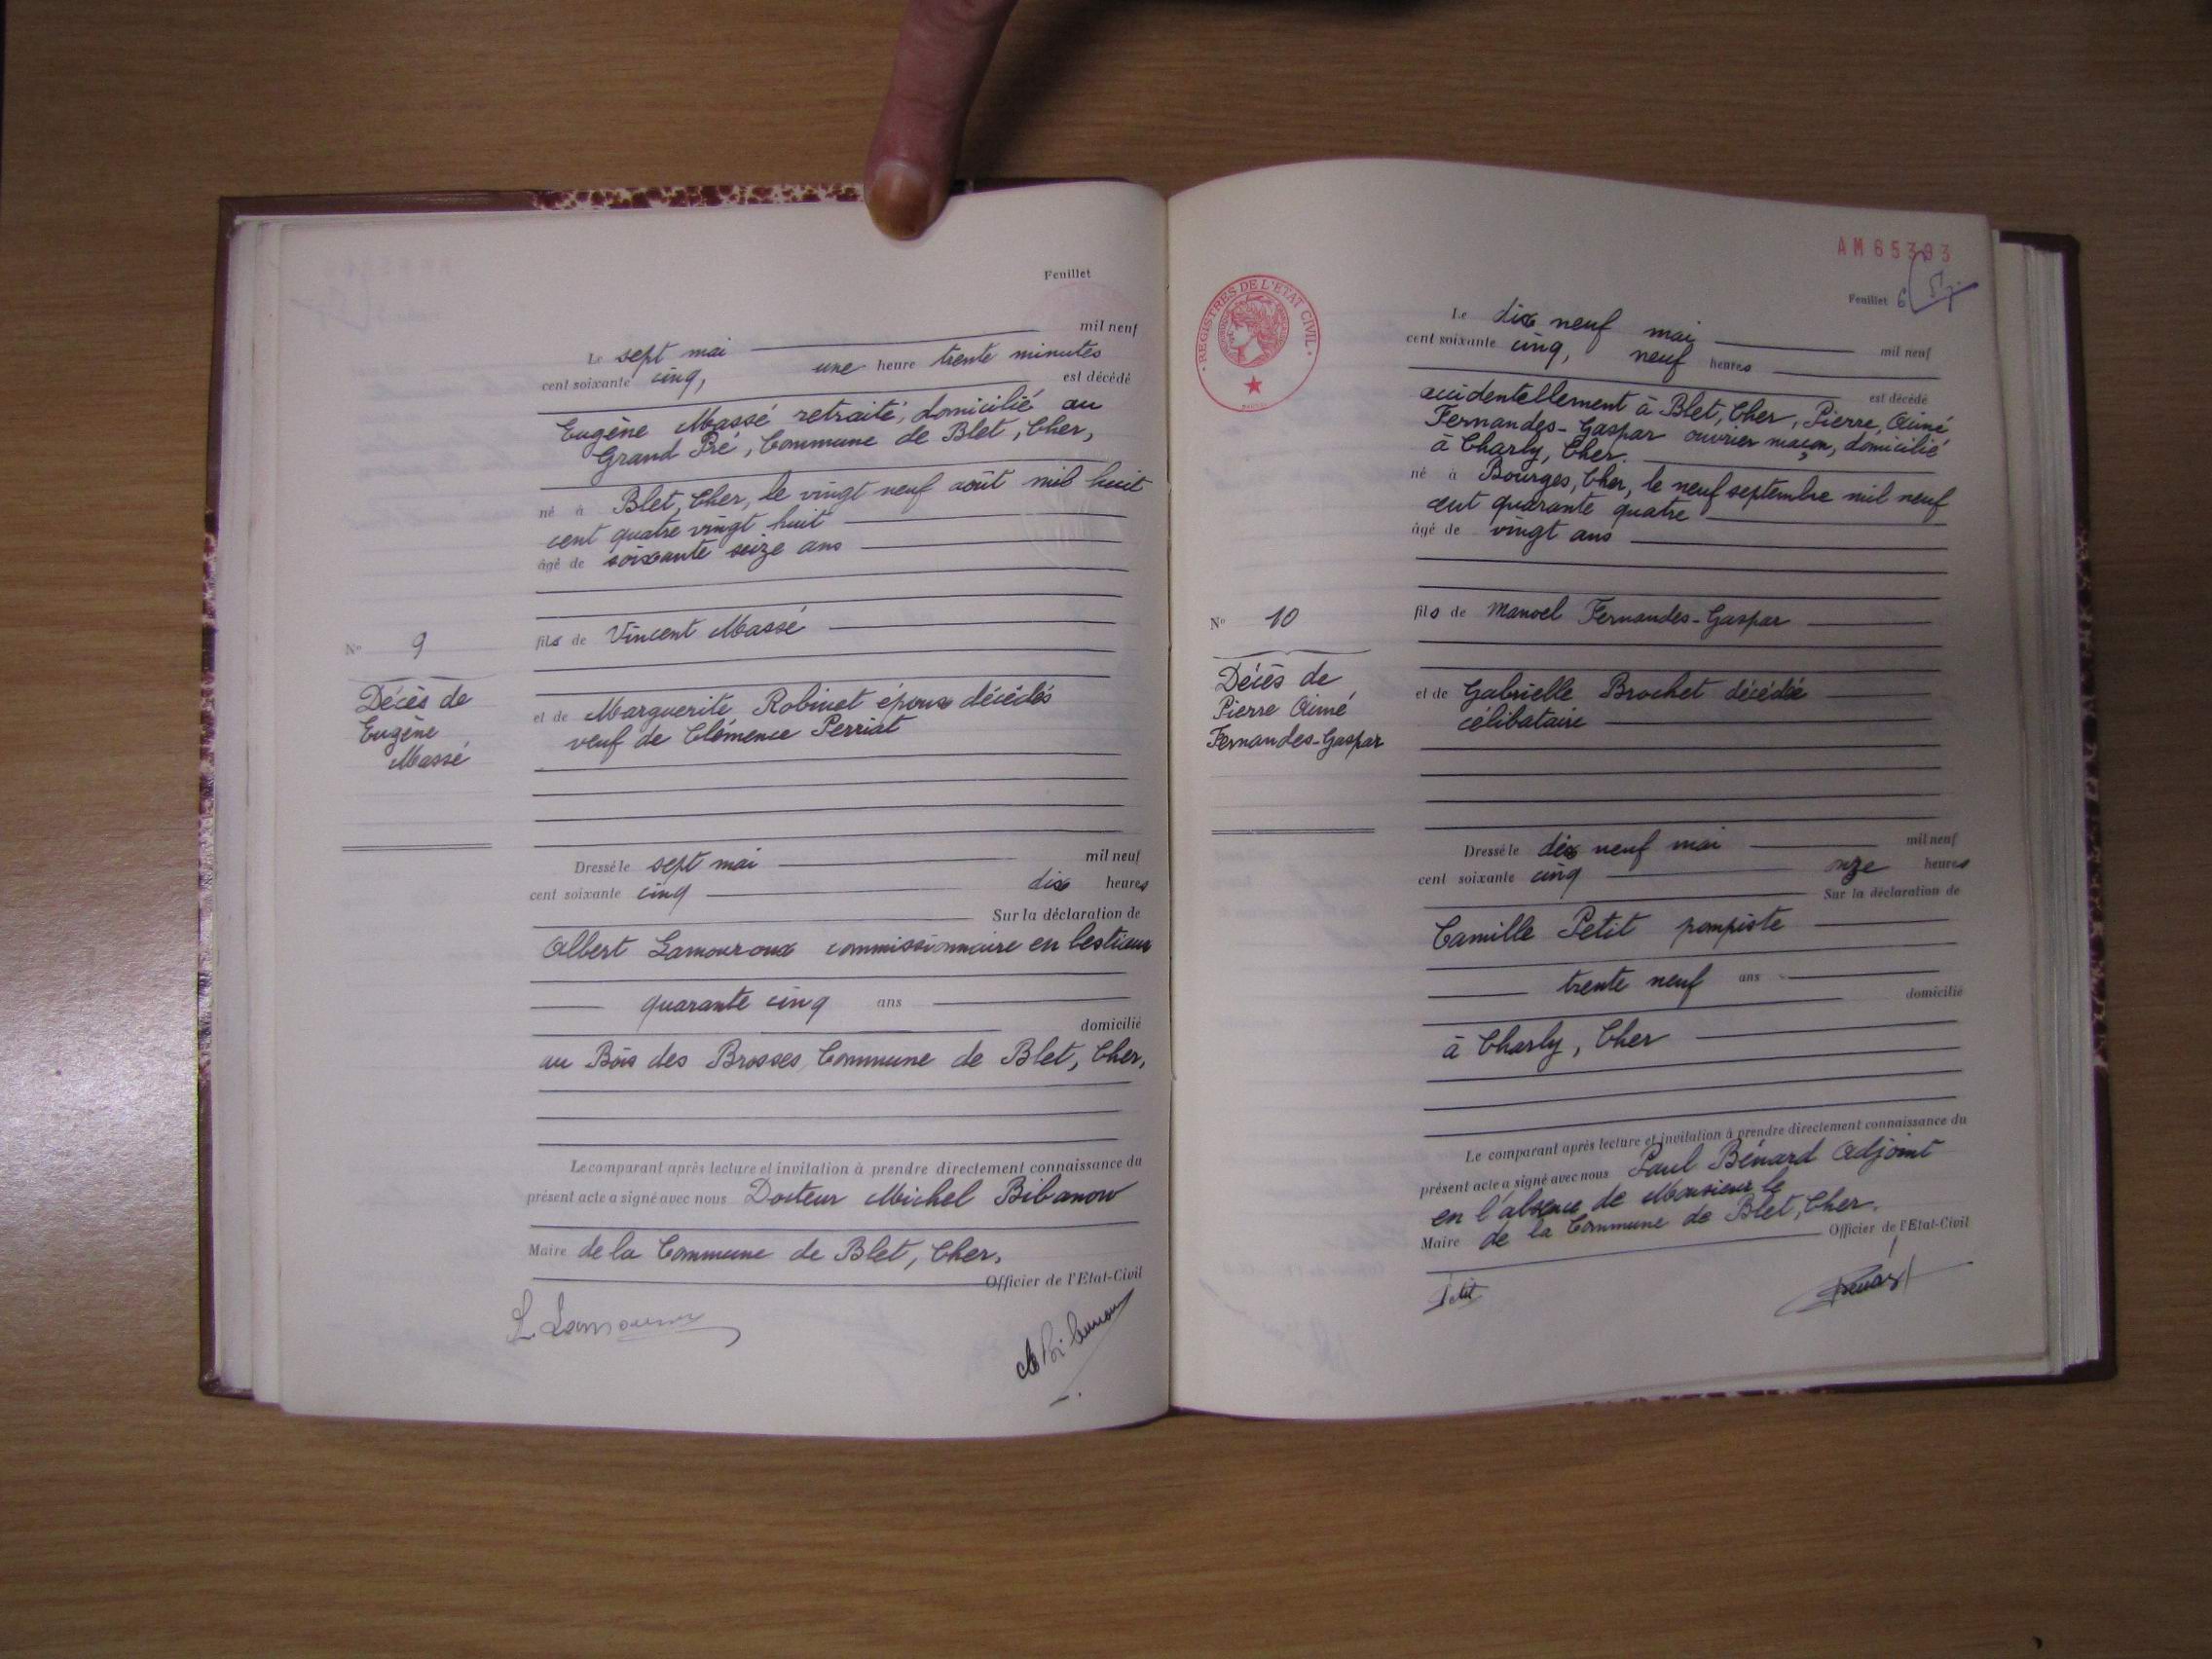 Feuillet
Le sept mai mil neuf
cent soixante cinq, une heure trente minutes
est décédé
Eugène Massé retraité, domicilié au
Grand Pré, Commune de Blet, Cher,
né à Blet, Cher, le vingt neuf août mil huit
cent quatre vingt huit
âgé de soixante seize ans
fils de Vincent Massé
N° 9
Décès de
Eugène
Massé
et de Marguerite Robinet époux décédés
veuf de Clémence Perriat
Dressé le sept mai mil neuf
cent soixante cinq dix heures
Sur la déclaration de
Albert Lamouroux commissionnaire en bestiaux
quarante cinq ans
domicilié
au Bois des Brosses Commune de Blet, Cher,
Le comparant après lecture et invitation à prendre directement connaissance du
présent acte a signé avec nous Docteur Michel Bibanow
Maire de la Commune de Blet, Cher.
Officier de l'Etat-Civil
REGISTRES DE L'ETAT CIVIL
AM 65393
Feuillet 6
Le dix neuf mai mil neuf
cent soixante cinq, neuf heures
est décédé
accidentellement à Blet, Cher, Pierre, Aimé
Fernandes-Gaspar ouvrier maçon, domicilié
à Charly, Cher.
né à Bourges, Cher, le neuf septembre mil neuf
cent quarante quatre
âgé de vingt ans
fils de Manoel Fernandes-Gaspar
N° 10
Décès de
Pierre Aimé
Fernandes-Gaspar
et de Gabrielle Brochet décédée
célibataire
Dressé le dix neuf mai mil neuf
cent soixante cinq onze heures
Sur la déclaration de
Camille Petit pompiste
trente neuf ans
domicilié
à Charly, Cher
Le comparant après lecture et invitation à prendre directement connaissance du
présent acte a signé avec nous Paul Bénard Adjoint
en l'absence de Monsieur le
Maire de la Commune de Blet, Cher.
Officier de l'Etat-Civil
Petit